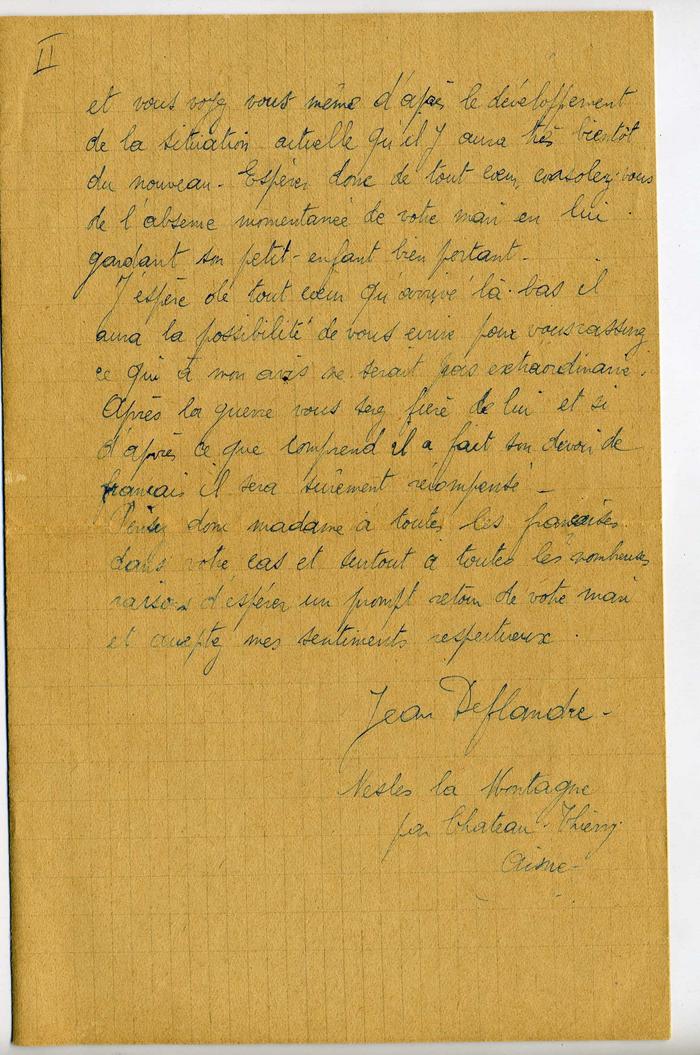 II
et vous voyez vous même d'après le développement
de la situation actuelle qu'il y aura très bientôt
du nouveau. Espérez donc de tout cœur, consolez-vous
de l'absence momentanée de votre mari en lui
gardant son petit-enfant bien portant.
J'espère de tout cœur qu'arrivé là-bas il
aura la possibilité de vous ecrire pour vous rassurer
ce qui à mon avis ne serait pas extraordinaire.
Après la guerre vous serez fière de lui et si
d'après ce que comprend il a fait son devoir de
français il sera surement récompensé -
Pensez donc madame à toutes les françaises
dans votre cas et surtout à toutes les nombreuses
raisons d'espérer un prompt retour de votre mari
et acceptez mes sentiments respectueux.
Jean Deflandre -
Nesles la Montagne
par Chateau-Thierry
Aisne -